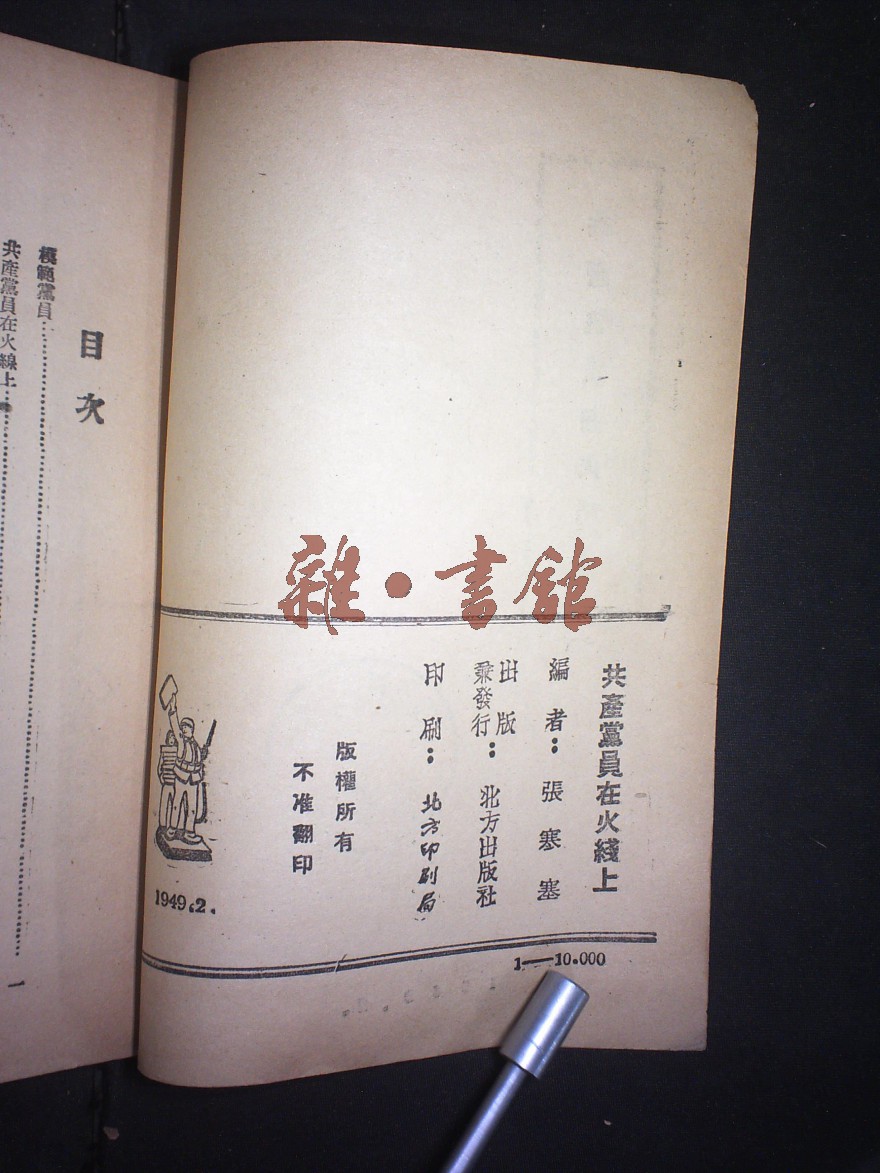 共產黨員在火綫上
編者：張塞塞
出版
兼發行：北方出版社
印刷：北方印刷局
版權所有
不准翻印
1949.2.
1—10.000
雜·書館
目次
模範黨員
共產黨員在火線上
一